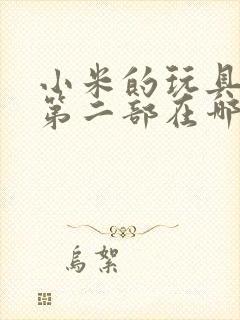 小米的玩具
第二部在哪
烏絮